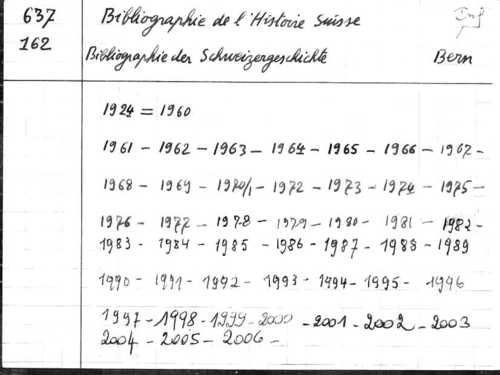 637 Bibliographie de l'Histoire Suisse Inf
162 Bibliographie der Schweizergeschichte Bern
1924 = 1960
1961 - 1962 - 1963 - 1964 - 1965 - 1966 - 1967 -
1968 - 1969 - 1970/1 - 1972 - 1973 - 1974 - 1975 -
1976 - 1977 - 1978 - 1979 - 1980 - 1981 - 1982 -
1983 - 1984 - 1985 - 1986 - 1987 - 1988 - 1989
1990 - 1991 - 1992 - 1993 - 1994 - 1995 - 1996
1997 - 1998 - 1999 - 2000 - 2001 - 2002 - 2003
2004 - 2005 - 2006 -